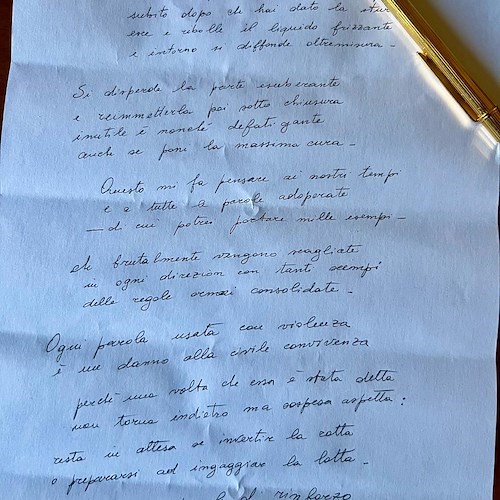 subito dopo che hai dato la stur
esce e ribolle il liquido frizzante
e intorno si diffonde oltremisura -
Si disperde la parte esuberante
e reimmetterla poi sotto chiusura
inutile è nonché defatigante
anche se poni la massima cura -
Questo mi fa pensare ai nostri tempi
e a tutte le parole adoperate
- di cui potrei portare mille esempi -
che brutalmente vengono scagliate
in ogni direzion con tanti scempi
delle regole ormai consolidate -
Ogni parola usata con violenza
è un danno alla civile convivenza
perché una volta che essa è stata detta
non torna indietro ma sospesa aspetta:
resta in attesa se invertir la rotta
o prepararsi ad ingaggiar la lotta -
di rimbalzo